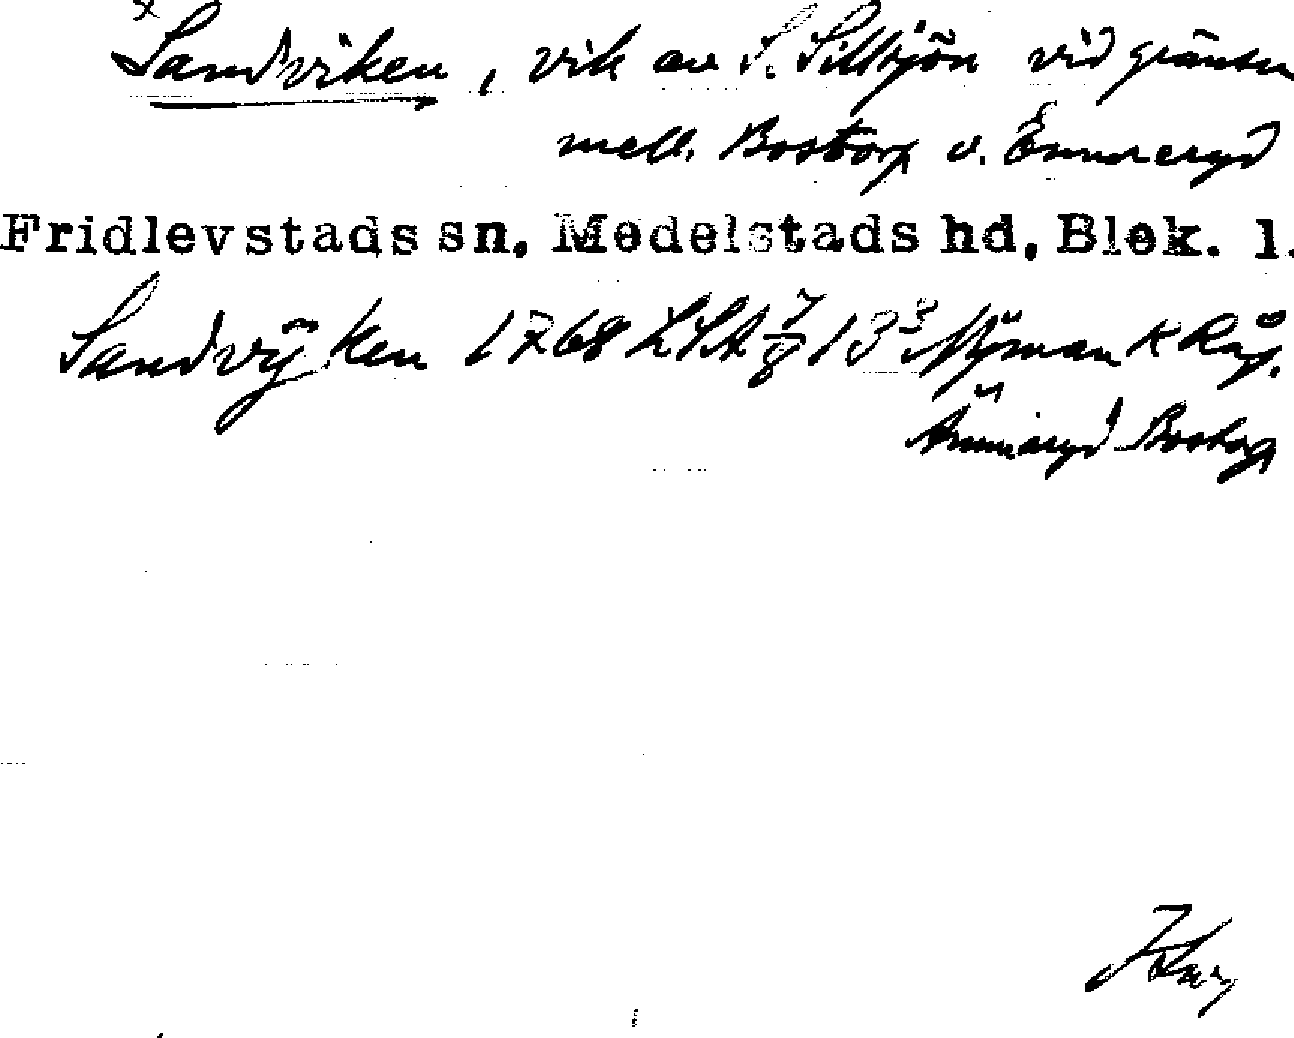 x
Sandviken, vik av S. Sillsjön vid gränsen
mell. Bostorp o. Ėnnaryd
Fridlevstads sn, Medelstads hd, Blek. l.
Sandvÿken 1768 LSA 7/8 13³ Nyman K Råg.
Bostorp